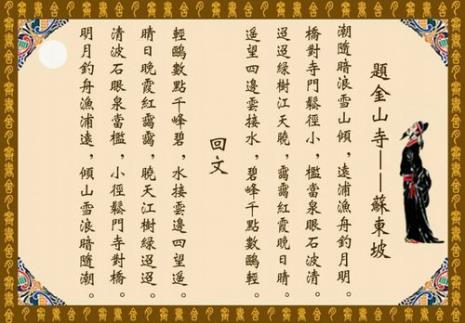 題金山寺——蘇東坡
潮隨暗浪雪山傾，遠浦漁舟釣月明。
橋對寺門鬆徑小，檻當泉眼石波清。
迢迢綠樹江天曉，靄靄紅霞晚日晴。
遙望四邊雲接水，碧峰千點數鷗輕。
回文
輕鷗數點千峰碧，水接雲邊四望遙。
晴日晚霞紅靄靄，曉天江樹綠迢迢。
清波石眼泉當檻，小徑鬆門寺對橋。
明月釣舟漁浦遠，傾山雪浪暗隨潮。